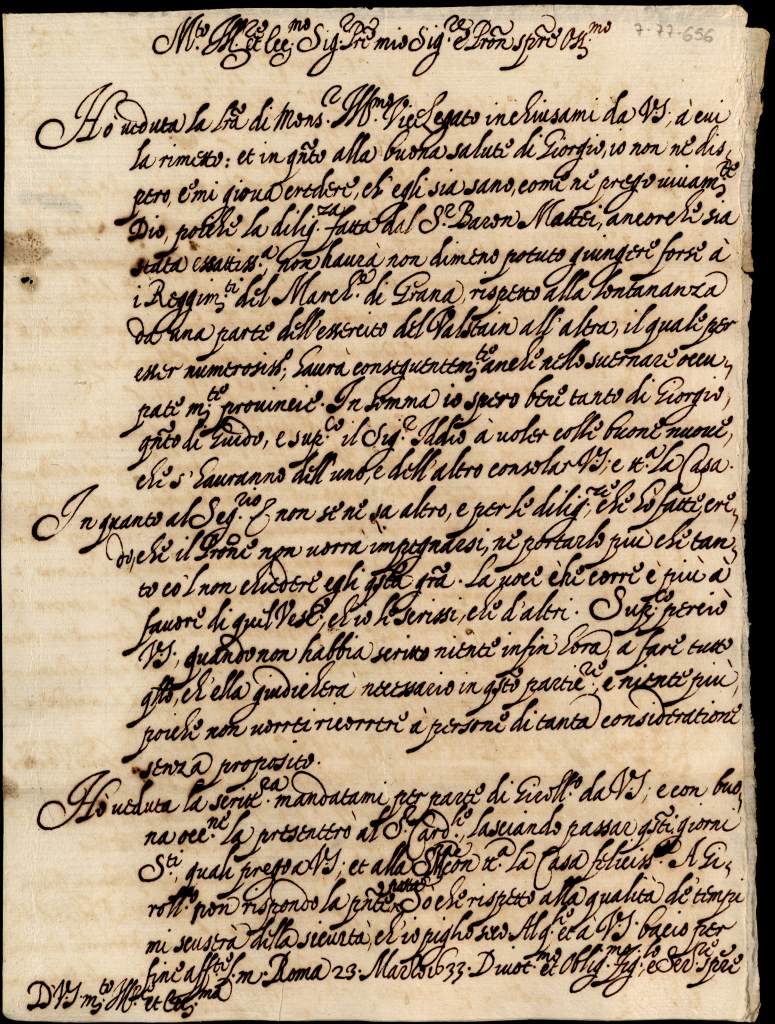 7-77-656
M.to Ill.re et Ecc.mo Sig.r P.re mio Sig.re e Pron sp.re Oss.mo
Ho veduta la lr̃a di Mons.r Ill.mo Vice Legato inchiusami da VS; à cui
la rimetto: et in qn̄to alla buona salute di Giorgio, io non ne dis-
pero, e mi giova credere, ch'egli sia sano, come ne prego vivam.te
Dio, poiche la dilig.za fatta dal S.r Baron Mattei, ancorche sia
stata esattiss.a non haurà non dimeno potuto giungere forse à
i Reggim.ti del March.e di Grana, rispetto alla lontananza
da una parte dell'essercito del Valstain all'altra, il quale per
esser numerosiss.o, haurà conseguentem.te anche nello suernare occu-
pate m.te provincie. In somma io spero bene tanto di Giorgio,
qn̄to di Guido, e sup.co il Sig.r Iddio à voler colle buone nuove,
che s'hauranno dell'uno, e dell'altro consolar VS; e tt.a la Casa.
In quanto al Seg.rio E non se ne sa altro, e per le dilig.ze che hò fatte cre-
do, che il Prōne non vorrà impegnarsi, ne portarlo più che tan-
to co'l non chiedere egli q̄sta grā. La voce che corre è più à
favore di quel Vesc.o, ch'io le scrissi, che d'altri. Sup.co perciò
VS; quando non habbia scritto niente infin'hora, a fare tutto
q̄llo, ch'ella giudicherà necessario in q̄sto partic.re, e niente più,
poiche non vorrei ricorrere à persone di tanta consideratione
senza proposito.
Hò veduta la scritt.ra mandatami per parte di Giroll.o da VS; e con buo-
na occ.ne la presenterò al S.r Card.le, lasciando passar q̄sti giorni
S.ti, quali prego a VS; et alla S.ra con tt.a la Casa feliciss.i. A Gi-
roll.o non rispondo la pn̄te So che rispetto alla qualità de' tempi
mi scuserà della sicurtà, ch'io piglio seco. Al q.le et à VS bacio per
fine aff.te l.m. Roma 23. Marzo 1633. Divot.mo et Oblig.mo fig.lo e Ser.re sp.re
D. VS. m.to Ill.re et Ecc.ma